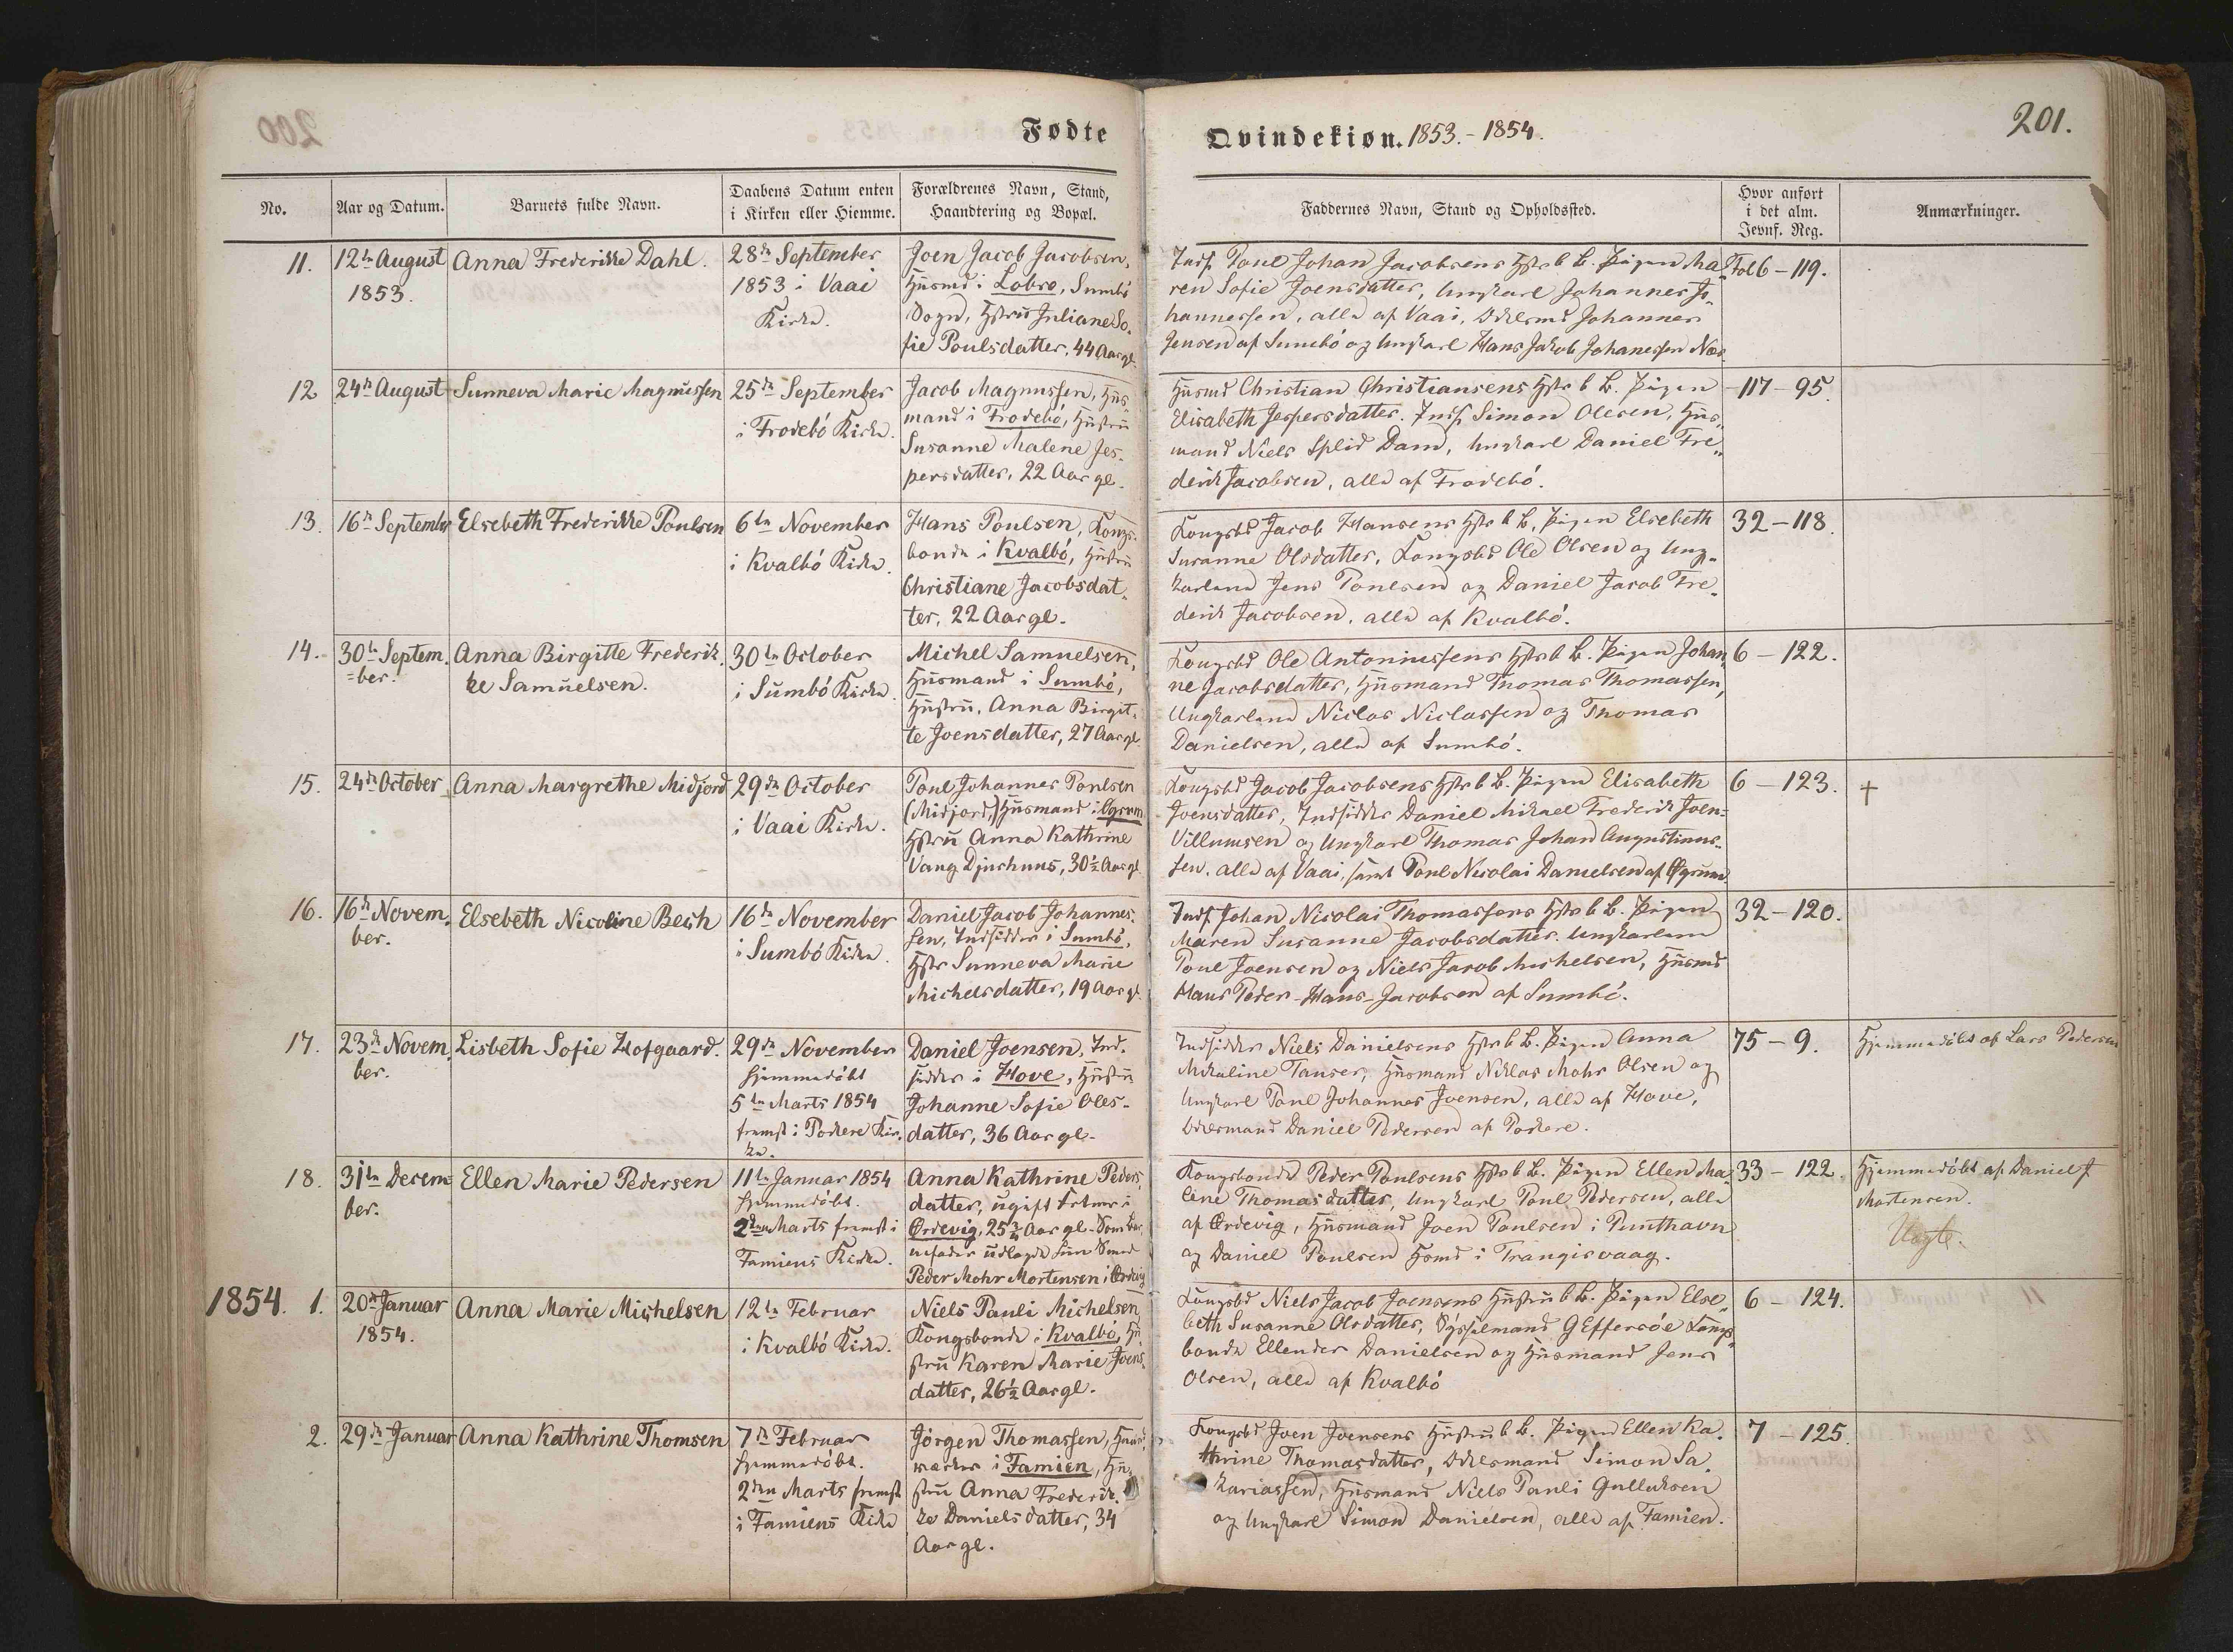 200
Fødte
Qvindekiøn. 1853. - 1854.
201.
No.
Aar og Datum.
Barnets fulde Navn.
Daabens Datum enten
i Kirken eller Hiemme.
Forældrenes Navn, Stand,
Haandtering og Bopæl.
Faddernes Navn, Stand og Opholdssted.
Hvor anført
i det alm.
Jevnf. Reg.
Anmærkninger.
11.
12te August
1853.
Anna Frederikke Dahl.
28de September
1853 i Vaai
Kirke.
Joen Jacob Jacobsen,
Husmd i Lobre, Sumbö
Sogn, Hstru Juliane So-
fie Poulsdatter, 44 Aar gl.
Inds. Poul Johan Jacobsens Hstr b. B. Pigen Ma-
ren Sofie Joensdatter, Ungkarl Johannes Jo-
hannessen, alle af Vaai, Odelsmd Johannes
Jensen af Sumbö og Ungkarl Hans Jakob Johanessen Næs
Fol 6 - 119.
12
24de August
Sunneva Marie Magnussen
25de September
i Frodebö Kirke.
Jacob Magnussen, Hus-
mand i Frodebö, Hustru
Susanne Malene Jes-
persdatter, 22 Aar gl.
Husmd Christian Christiansens Hstr b. B. Pigen
Elisabeth Jespersdatter. Inds. Simon Olesen, Hus-
mand Niels Splid Dam, Ungkarl Daniel Fre-
derik Jacobsen, alle af Frodebö.
117 - 95.
13.
16de September
Elsebeth Frederikke Poulsen
6te November
i Kvalbö Kirke.
Hans Poulsen, Kongs-
bonde i Kvalbö, Hustru
Christiane Jacobsdat-
ter, 22 Aar gl.
Kongsbd Jacob Hansens Hstr b. B. Pigen Elsebeth
Susanne Olsdatter, Kongsbd Ole Olsen og Ung-
karlene Jens Poulsen og Daniel Jacob Fre-
derik Jacobsen, alle af Kvalbö.
32 - 118.
14.
30te Septem-
=ber.
Anna Birgitte Frederik-
ke Samuelsen.
30te October
i Sumbö Kirke.
Michel Samuelsen,
Husmand i Sumbö,
Hustru, Anna Birgit-
te Joensdatter, 27 Aar gl.
Kongsbd Ole Antoniussens Hstr b. B. Pigen Johan-
ne Jacobsdatter, Husmand Thomas Thomassen,
Ungkarlene Niclas Niclassen og Thomas
Danielsen, alle af Sumbö.
6 - 122.
15.
24de October
Anna Margrethe Midjord
29de October
i Vaai Kirke.
Poul Johannes Poulsen
(Midjord,) Husmand i Øgrum
Hstru Anna Kathrine
Vang Djurhuus, 30½ Aar gl.
Kongsbd Jacob Jacobsens Hstr b. B. Pigen Elisabeth
Joensdatter, Indsidder Daniel Mikael Frederik Joen-
Villumsen og Ungkarl Thomas Johan Augustinus-
sen. alle af Vaai, samt Poul Nicolai Danielsen af Øgrum.
6 - 123.
†
16.
16de Novem-
ber.
Elsebeth Nicoline Bech
16de November
i Sumbö Kirke.
Daniel Jacob Johannes-
sen, Indsidder i Sumbö,
Hstr Sunneva Marie
Michelsdatter, 19 Aar gl.
Inds. Johan Nicolai Thomassens Hstr b. B. Pigen
Maren Susanne Jacobsdatter. Ungkarlene
Poul Joensen og Niels Jacob Michelsen, Husmd
Hans Peder-Hans-Jacobsen af Sumbö.
32 - 120.
17.
23de Novem-
ber.
Lisbeth Sofie Hofgaard.
29de November
hjemmedöbt
5te Marts 1854
fremst i Porkere Kir-
ke.
Daniel Joensen, Ind-
sidder i Hove, Hustru
Johanne Sofie Oles-
datter, 36 Aar gl.
Indsidder Niels Danielsens Hstr b. B. Pigen Anna
Mikaline Tauser, Husmand Niklas Mohr Olsen og
Ungkarl Poul Johannes Joensen, alle af Hove,
Odelsmand Daniel Pedersen af Porkere.
75 - 9.
Hjemmedöbt af Lars Pedersen
18.
31te Decem-
ber.
Ellen Marie Pedersen
11te Januar 1854
hjemmedöbt.
2den Marts fremst i
Famiens Kirke.
Anna Kathrine Peders-
datter, ugift
Ördevig, 25¾ Aar gl. Som Bar-
nefader udlagde hun Smed
Peder Mohr Mortensen i Ördevig
Kongsbonde Peder Poulsens Hstr b. B. Pigen Ellen Ma-
lene Thomasdatter, Ungkarl Poul Pedersen, alle
af Ördevig, Husmand Joen Poulsen i Punthavn
og Daniel Poulsen Hsmd i Trangisvaag.
33 - 122.
Hjemmedöbt af Daniel J
Mortensen.
Uægte.
1854.
1.
20de Januar
1854.
Anna Marie Michelsen
12te Februar
i Kvalbö Kirke.
Niels Pauli Michelsen
Kongsbonde i Kvalbö, Hu-
stru Karen Marie Joens-
datter, 26½ Aar gl.
Kongsbd Niels Jacob Joensens Hustru b. B. Pigen Else-
beth Susanne Olsdatter, Sysselmand G Effersöe Kongs-
bonde Ellender Danielsen og Husmand Jens
Olsen, alle af Kvalbö
6 - 124.
2.
29de Januar
Anna Kathrine Thomsen
7de Februar
hjemmedöbt.
2den Marts fremst
i Famiens Kirke
Jörgen Thomassen,
i Famien, Hu-
stru Anna Frederik-
ke Danielsdatter, 34
Aar gl.
Kongsbd Joen Joensens Hustru b. B. Pigen Ellen Ka-
thrine Thomasdatter, Odelsmand Simon Sa-
kariassen, Husmand Niels Pauli Gulluksen
og Ungkarl Simon Danielsen, alle af Famien.
7 - 125.